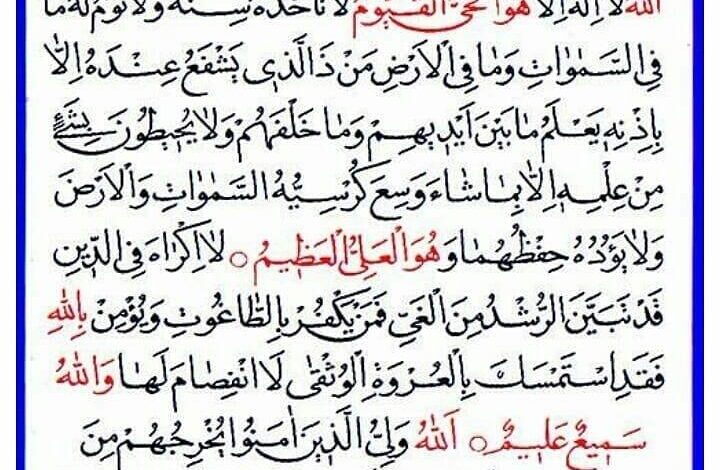 اللهُ لَا اِلٰهَ اِلَّا هُوَ الْحَيُّ الْقَيُّومُ لَا تَأْخُذُهُ سِنَةٌ وَلَا نَوْمٌ لَهُ مَا
فِي السَّمٰوَاتِ وَمَا فِي الْاَرْضِ مَنْ ذَا الَّذِي يَشْفَعُ عِنْدَهُ اِلَّا
بِاِذْنِهِ يَعْلَمُ مَا بَيْنَ اَيْدِيهِمْ وَمَا خَلْفَهُمْ وَلَا يُحِيطُونَ بِشَيْءٍ
مِنْ عِلْمِهِ اِلَّا بِمَا شَاءَ وَسِعَ كُرْسِيُّهُ السَّمٰوَاتِ وَالْاَرْضَ
وَلَا يَؤُدُهُ حِفْظُهُمَا وَهُوَ الْعَلِيُّ الْعَظِيمُ ○ لَا اِكْرَاهَ فِي الدِّينِ
قَدْ تَبَيَّنَ الرُّشْدُ مِنَ الْغَيِّ فَمَنْ يَكْفُرْ بِالطَّاغُوتِ وَيُؤْمِنْ بِاللهِ
فَقَدِ اسْتَمْسَكَ بِالْعُرْوَةِ الْوُثْقٰى لَا انْفِصَامَ لَهَا وَاللهُ
سَمِيعٌ عَلِيمٌ ○ اَللهُ وَلِيُّ الَّذِينَ اٰمَنُوا يُخْرِجُهُمْ مِنَ